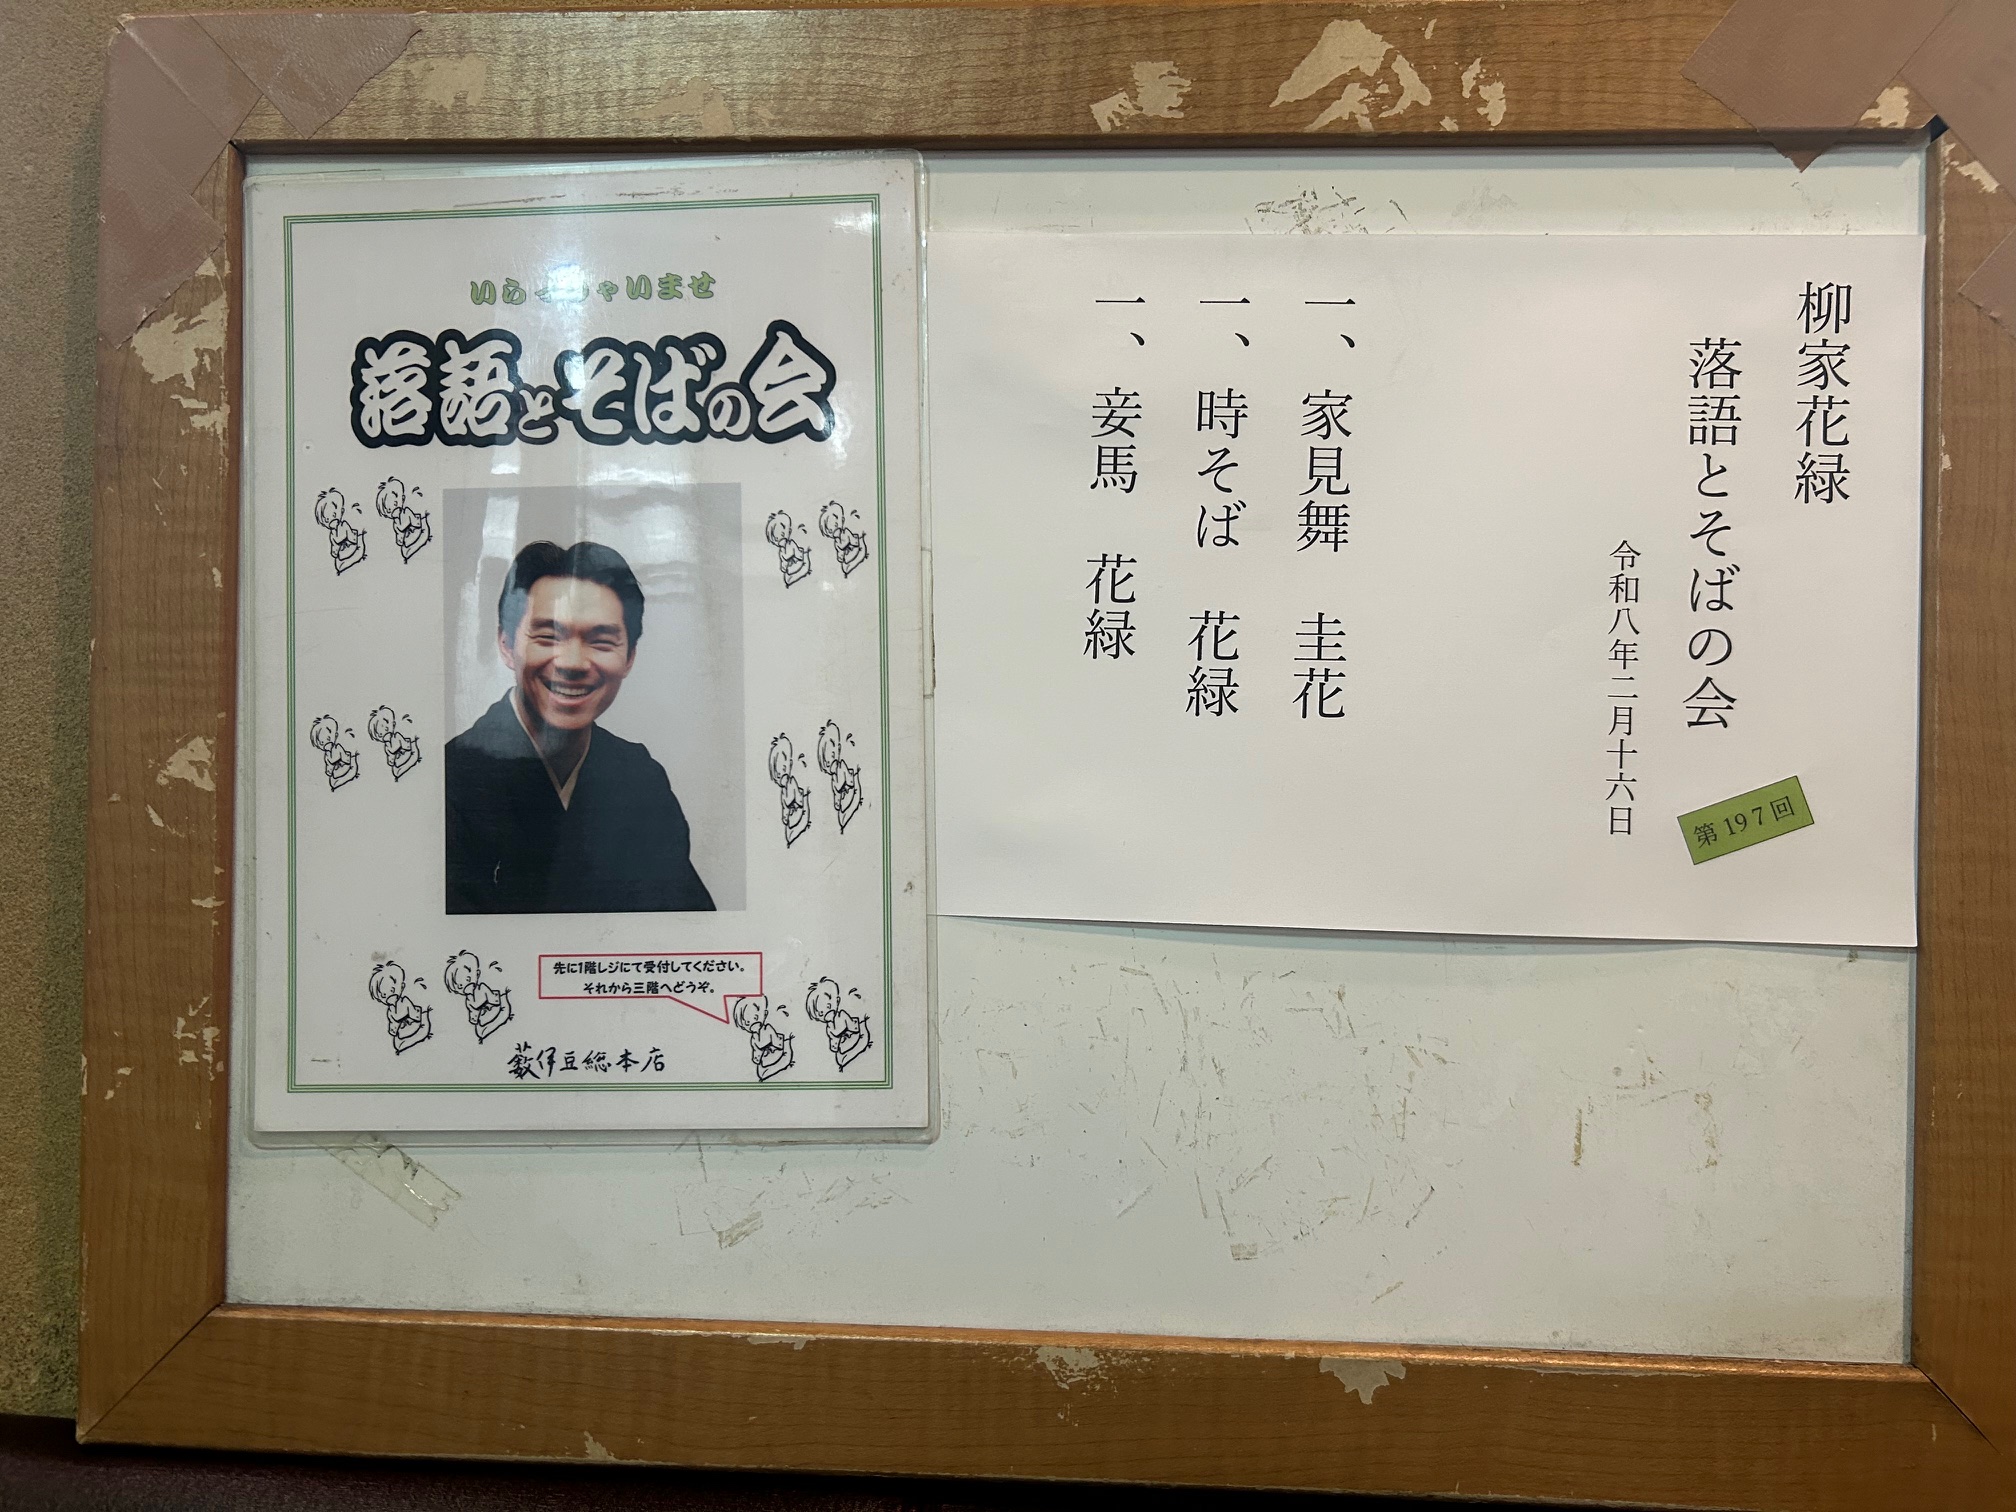 いらっしゃいませ
落語とそばの会
先に1階レジにて受付してください。
それから三階へどうぞ。
藪伊豆総本店
柳家花緑
落語とそばの会
第197回
令和八年二月十六日
一、家見舞 圭花
一、時そば 花緑
一、妾馬 花緑